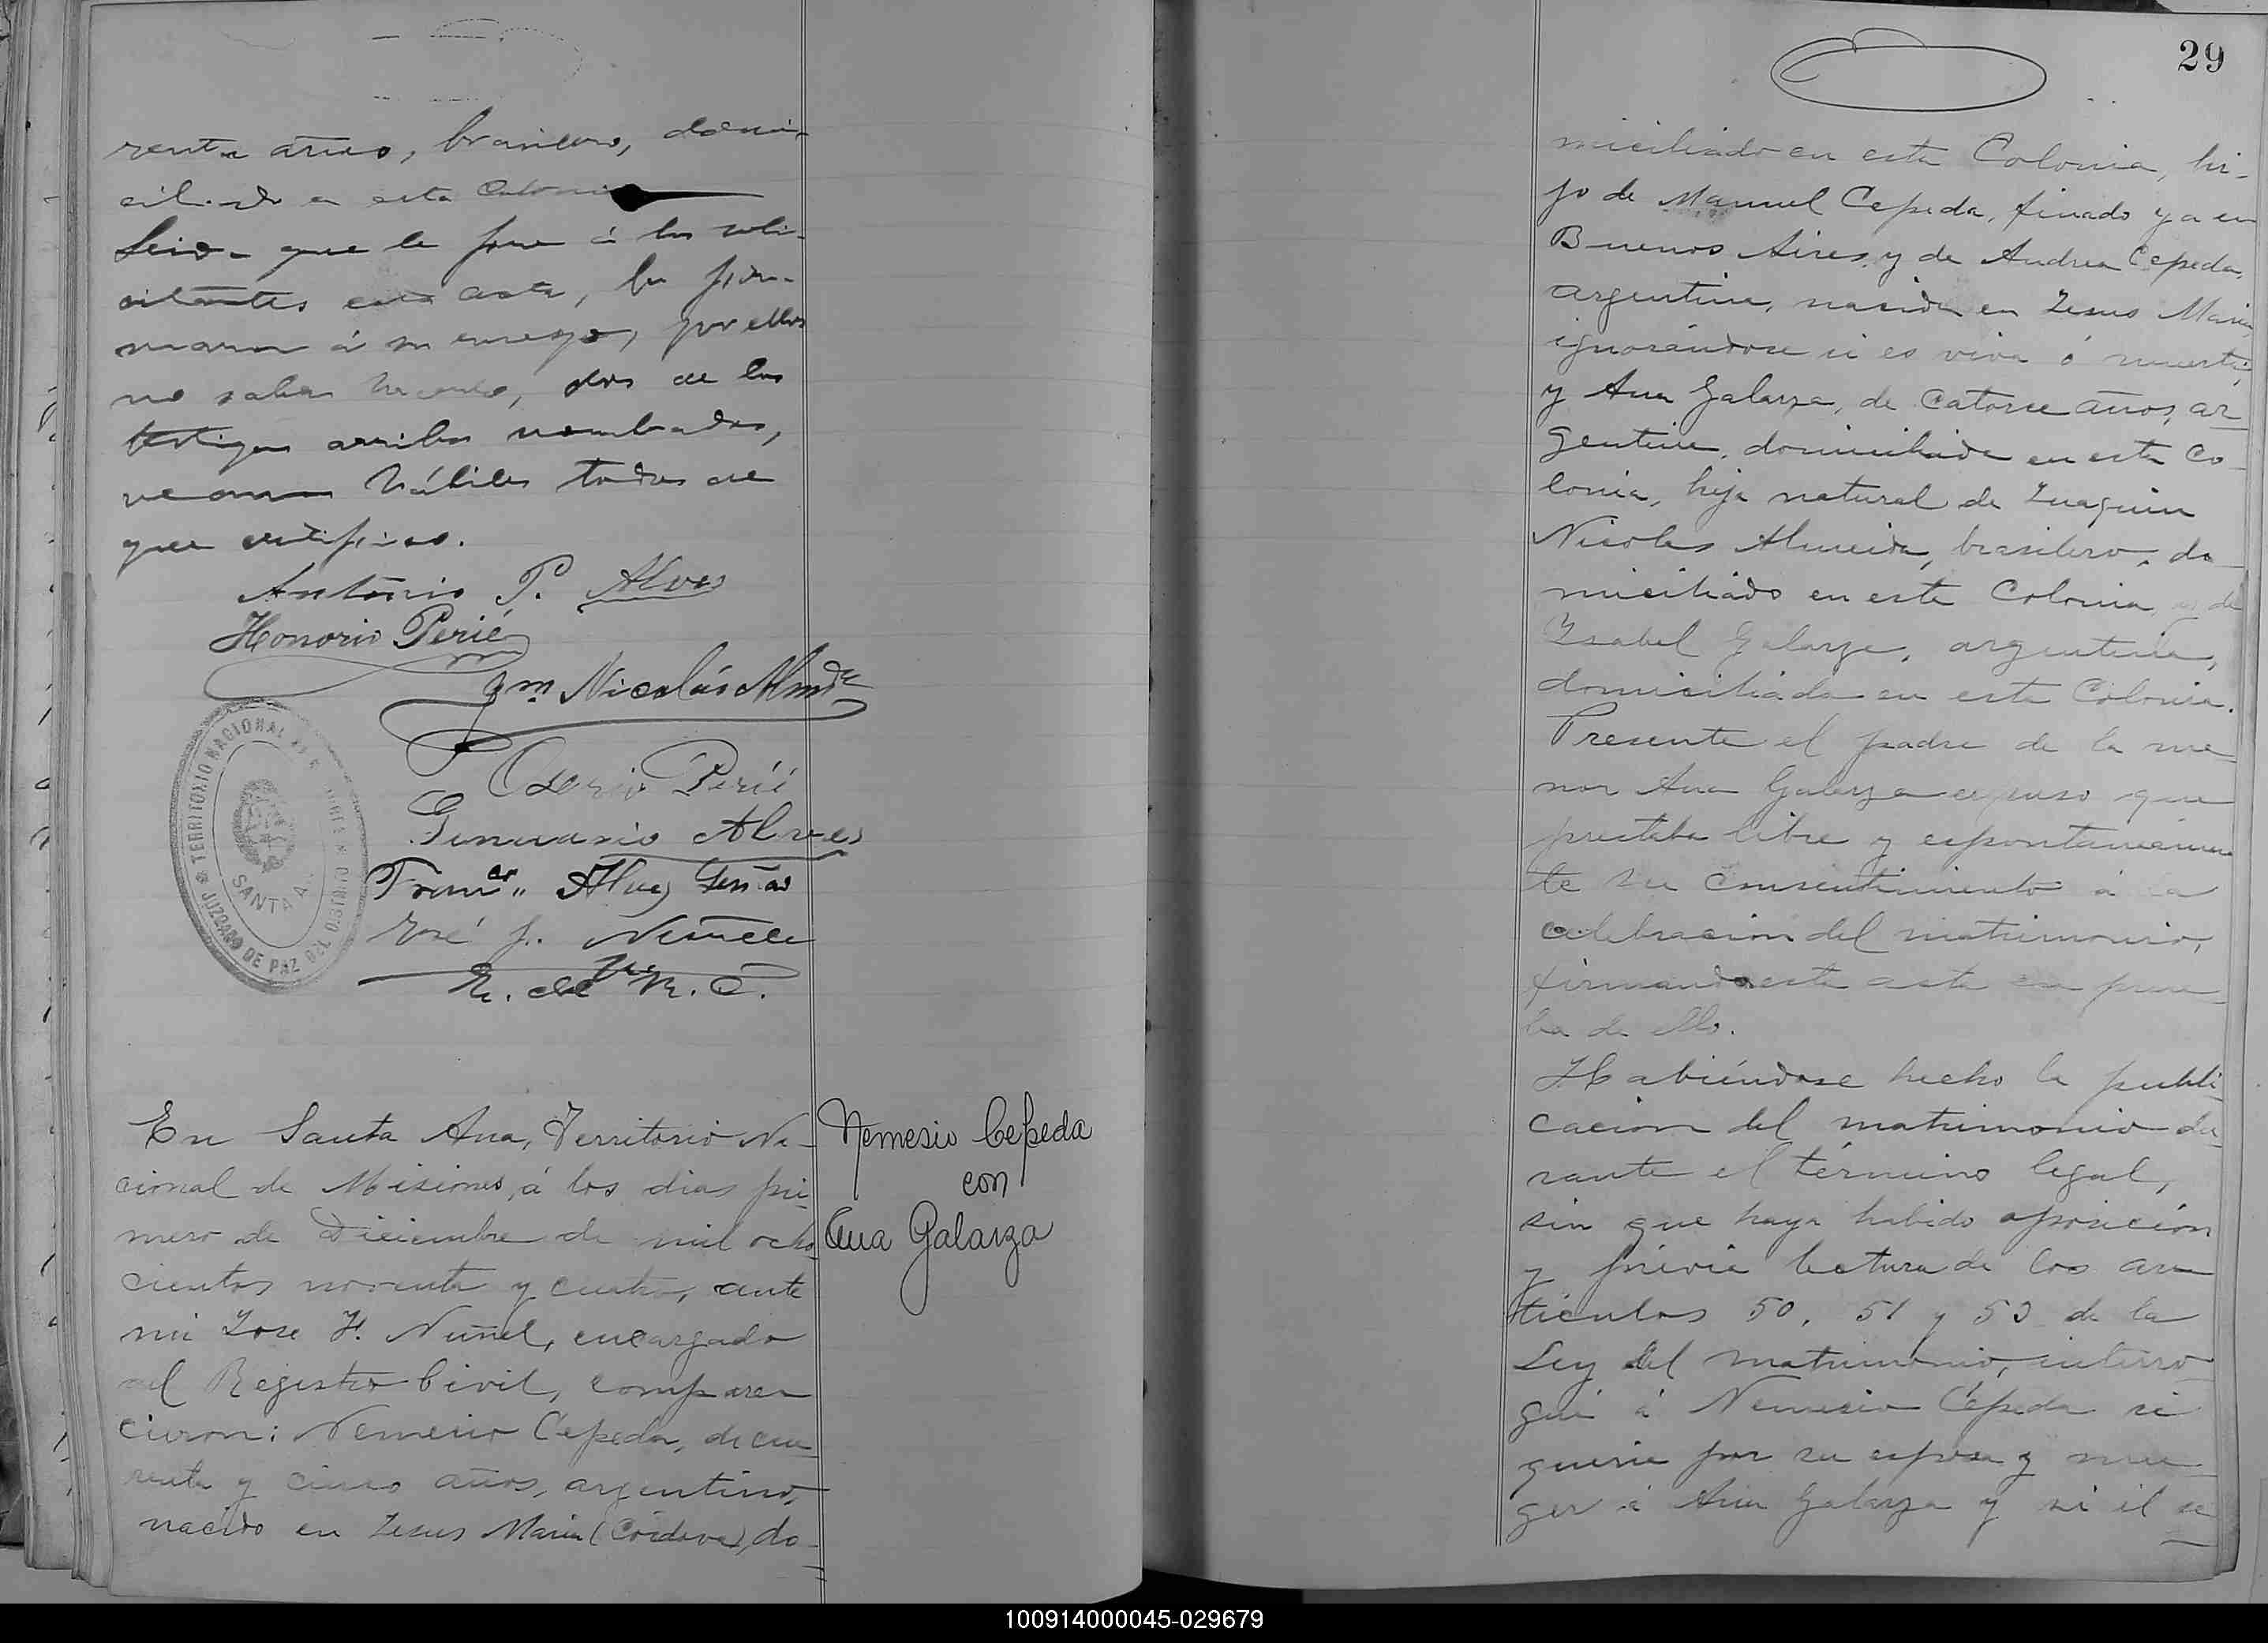 renta años, brasilero, domi-
ciliado en esta Colonia
Leida que le fue á los soli-
citantes esta acta, la fir-
maron á su ruego, por ellos
no saber hacerlo, dos de los
testigos arriba nombrados,
vecinos hábiles todos de
que certifico.
Antonio P. Alves
Honorio Perié
Jm Nicolás Almda
Osorio Perié
Genuario Alves
Franco Alves
José F. Nuñel
E. del R. C.
TERRITORIO NACIONAL DE MISIONES
JUZGADO DE PAZ DEL DISTRITO
SANTA A.
En Santa Ana, Territorio Na-
cional de Misiones, á los dias pri-
mero de Diciembre de mil ocho-
cientos noventa y cuatro, ante
mi Jose F. Nuñel, encargado
del Registro Civil, compare-
cieron: Nemesio Cepeda, de cua-
renta y cinco años, argentino,
nacido en Jesus Maria (Córdova), do-
Nemesio Cepeda
con
Ana Galarza
29
miciliado en esta Colonia, hi-
jo de Manuel Cepeda, finado ya en
Buenos Aires y de Andrea Cepeda,
argentina, nacida en Jesus Maria,
ignorándose si es viva ó muerta,
y Ana Galarza, de catorce años, ar-
gentina, domiciliada en esta Co-
lonia, hija natural de Juaquin
Nicolas Almeida, brasilero, do-
miciliado en esta Colonia y de
Ysabel Galarza, argentina,
domiciliada en esta Colonia.
Presente el padre de la me-
nor Ana Galarza expuso que
prestaba libre y espontaneamen-
te su consentimiento á la
celebracion del matrimonio,
firmando esta acta en prue-
ba de ello.
Habiéndose hecho la publi-
cacion del matrimonio du-
rante el término legal,
sin que haya habido oposición
y prévia lectura de los ar-
tículos 50, 51 y 53 de la
Ley del matrimonio, interro-
gué á Nemesio Cépeda si
queria por su esposa y mu-
ger á Ana Galarza y si él se
100914000045-029679